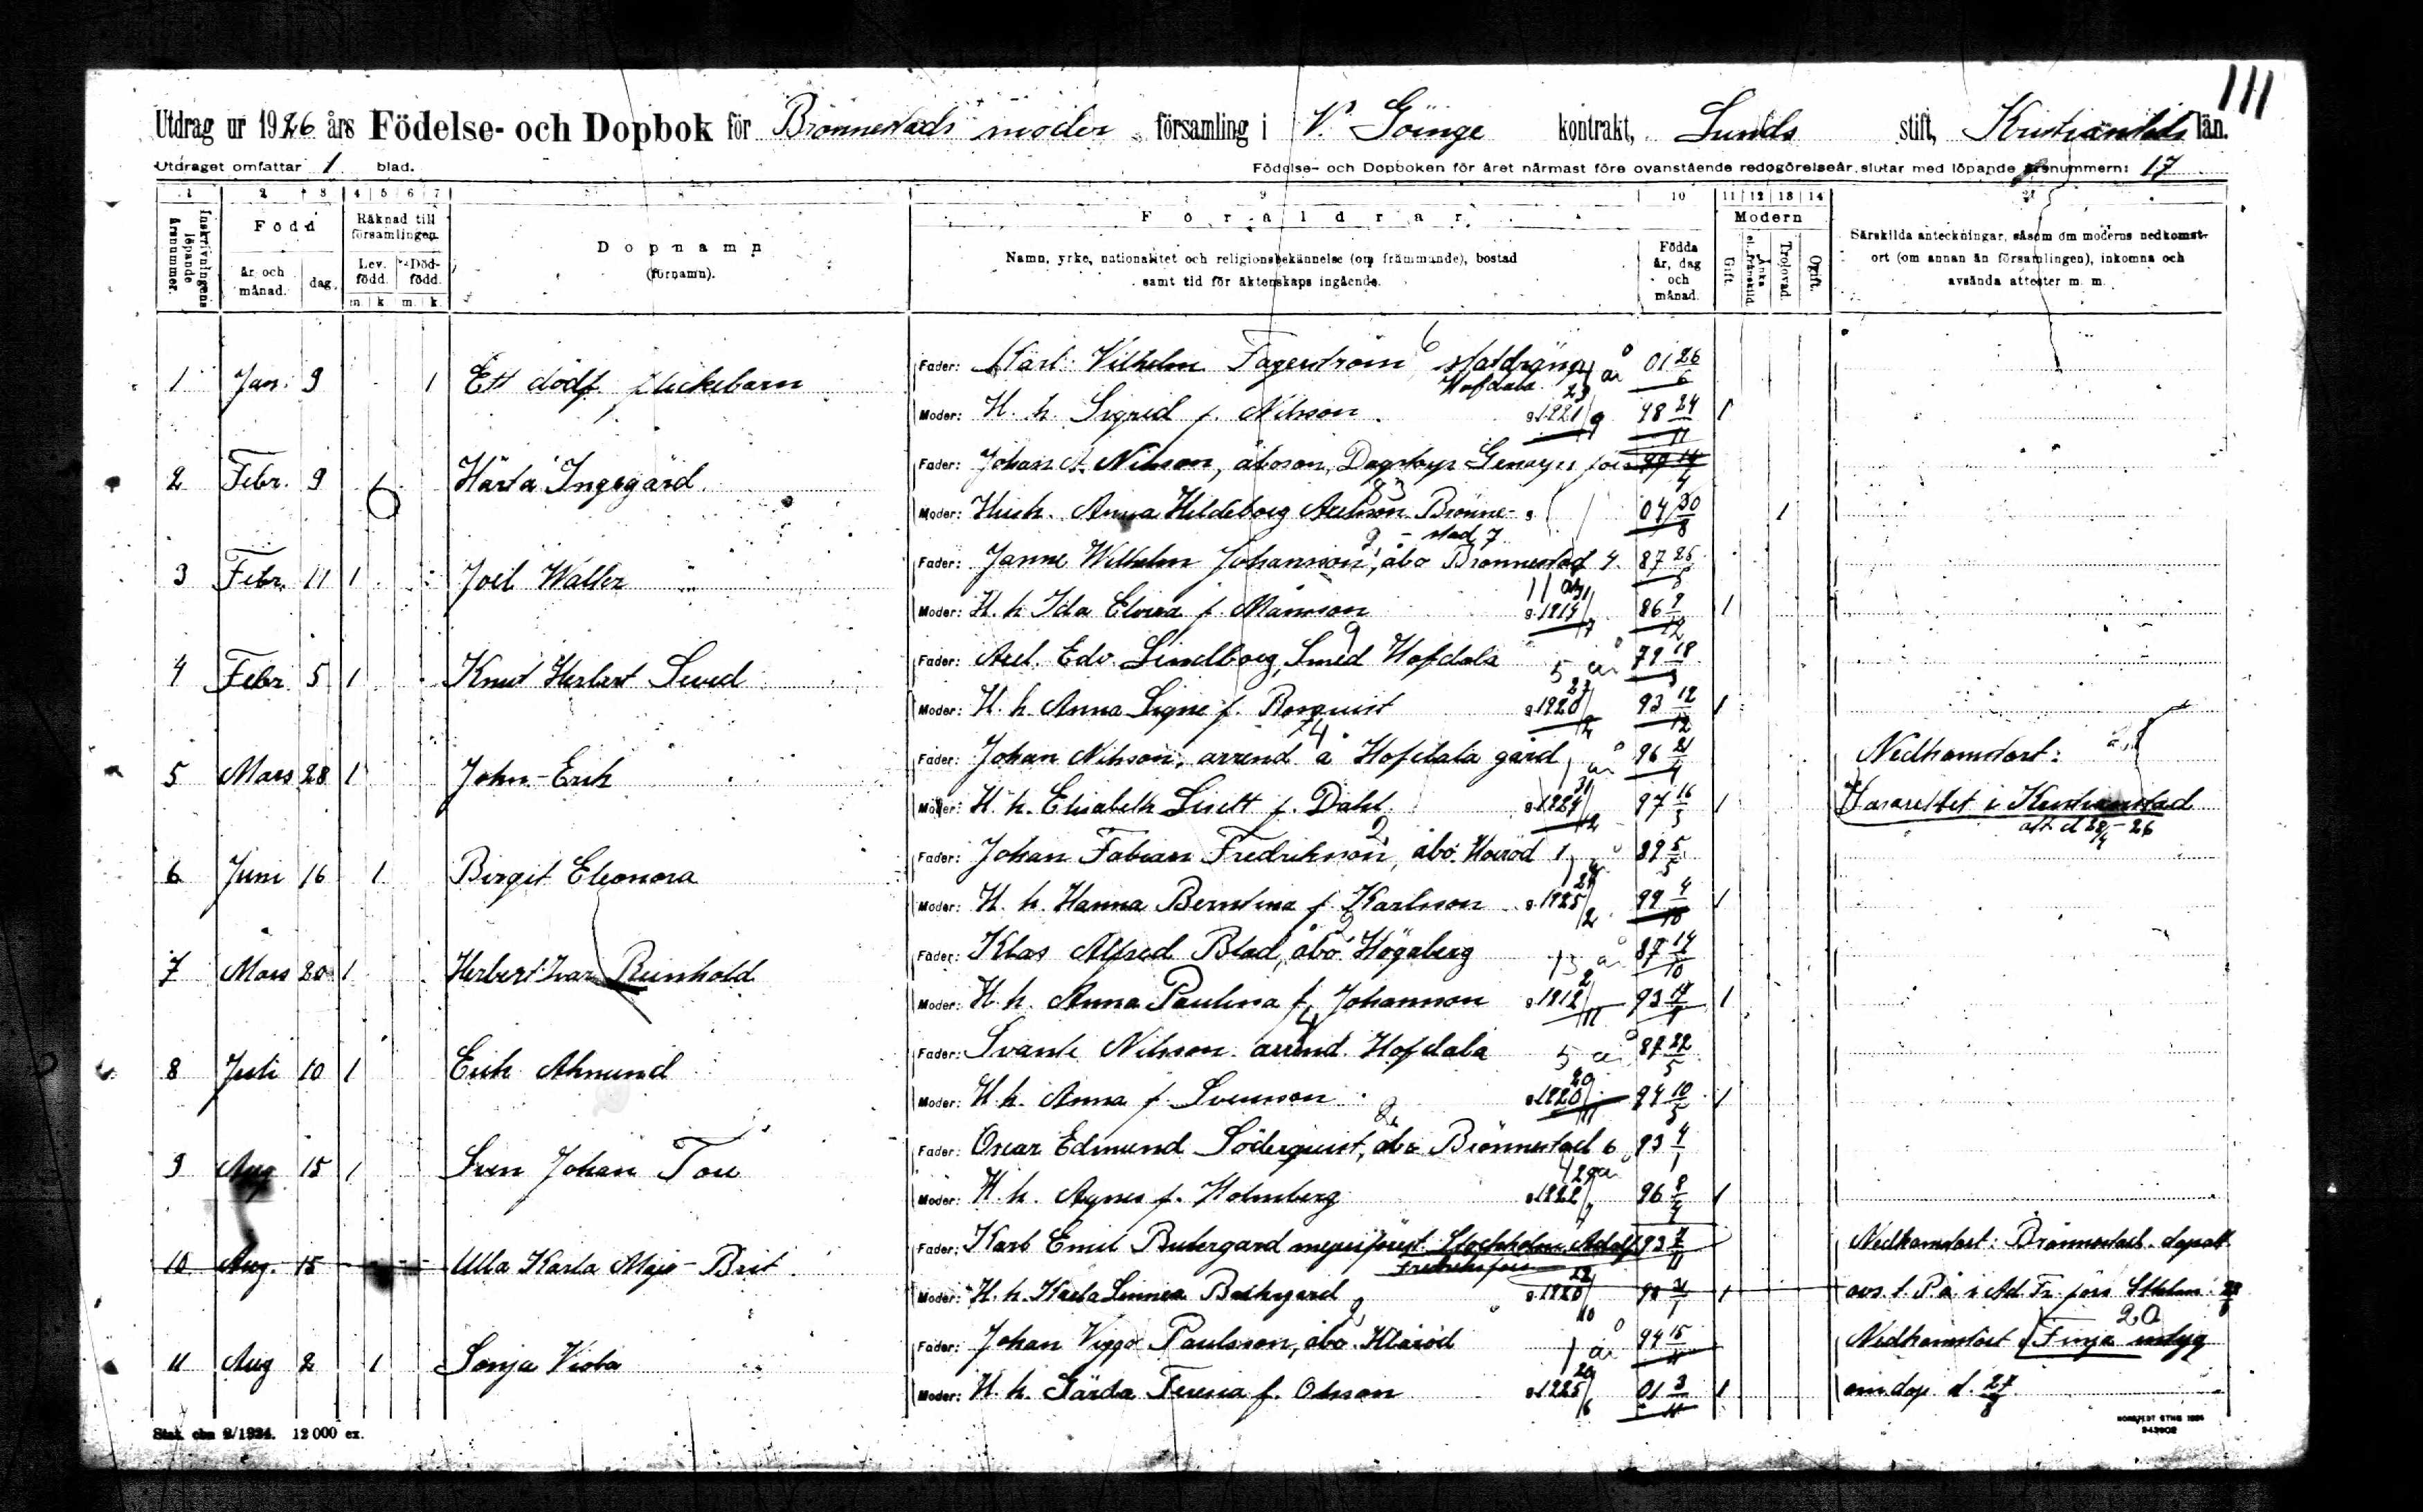 111
Utdrag ur 1926 års Födelse- och Dopbok för Brönnestads moder församling i V. Göinge kontrakt, Lunds stift, Kristianstads län.
Utdraget omfattar 1 blad. Födelse- och Dopboken för året närmast före ovanstående redogörelseår slutar med löpande årsnummern: 17
1 2 3 4 5 6 7 8 9 10 11 12 13 14
Inskrivningens löpande årsnummer.
Född
år och månad. dag.
Räknad till församlingen
Lev. född. Död-född.
m. k. m. k.
Dopnamn
(förnamn).
Föräldrar
Namn, yrke, nationalitet och religionsbekännelse (om främmande), bostad
samt tid för äktenskaps ingående.
Födda år, dag och månad.
Modern
Gift. Änka el. frånskild. Trolovad. Ogift.
Särskilda anteckningar, såsom om moderns nedkomst-
ort (om annan än församlingen), inkomna och
avsända attester m. m.
1 Jan. 9 1 Ett dödf. flickebarn
Fader: Karl Vilhelm Fagerström statdräng 01 26/6
Hofdala
Moder: H. h. Sigrid f. Nilsson g. 1921 98 24/11 1
2 Febr. 9 1 Härta Ingegärd
Fader: Johan A. Nilsson, åboson,
Moder: Hush. Anna Hildeborg Axelsson Brönne- 04 30/8 1
stad 7
3 Febr. 11 1 Joel Walter
Fader: Janne Wilhelm Johansson, åbo Brönnestad 4. 87 25
Moder: H. h. Ida Elvira f. Månsson g. 1914 86 9/12 1
4 Febr. 5 1 Knut Herbert Seved
Fader: Axel Edv. Lindborg, Smed Hofdala 5 år 79 18
Moder: H. h. Anna Signe f. Bergquist g. 1920 93 12/12 1
5 Mars 28 1 John-Erik
Fader: Johan Nilsson, arrend. å Hofdala gård 96 21/4
Nedkomstort:
Moder: H. h. Elisabeth Liselt f. Dahl g. 1924 31/12 97 16/3 1
Lasarettet i Kristianstad
att d 28/4-26
6 Juni 16 1 Birgit Eleonora
Fader: Johan Fabian Fredriksson, åbo Hovröd 1 89 5/5
Moder: H. h. Hanna Berntina f. Karlsson g. 1925 99 4/10 1
7 Mars 20 1 Herbert Ivar Reinhold
Fader: Klas Alfred Blad, åbo Högaberg 13 år 87 14/10
Moder: H. h. Anna Paulina f. Johansson g. 1912 2/11 93 1
8 Juli 10 1 Erik Almund
Fader: Svante Nilsson arrend. Hofdala 5 år 87 22/5
Moder: H. h. Anna f. Svensson g. 1920 94 10/5 1
9 Aug 15 1 Sven Johan Tore
Fader: Oscar Edmund Söderquist, åbo Brönnestad 6 93 4/1
Moder: H. h. Agnes f. Holmberg g. 1922 96 8 1
10 Aug. 15 Ulla Karla Maj-Brit
Fader: Karl Emil mejeriförest. Stockholm Adolf 93 7/11
Fredriks förs
Nedkomstort: Brönnestad. dopatt
Moder: H. h. Karla Linnea g. 1920 1
avs. t. P.ä. i Ad. Fr. förs Sthlm
11 Aug 2 1 Sonja Viola
Fader: Johan Viggo Paulsson, åbo 1 år 94 15/11
Nedkomstort Finja intyg
Moder: H. h. Gärda Teresia f. Olsson g. 1925 20/6 01 3/11 1
om dop. d. 27/8
Stat. cbn 2/1924. 12 000 ex.